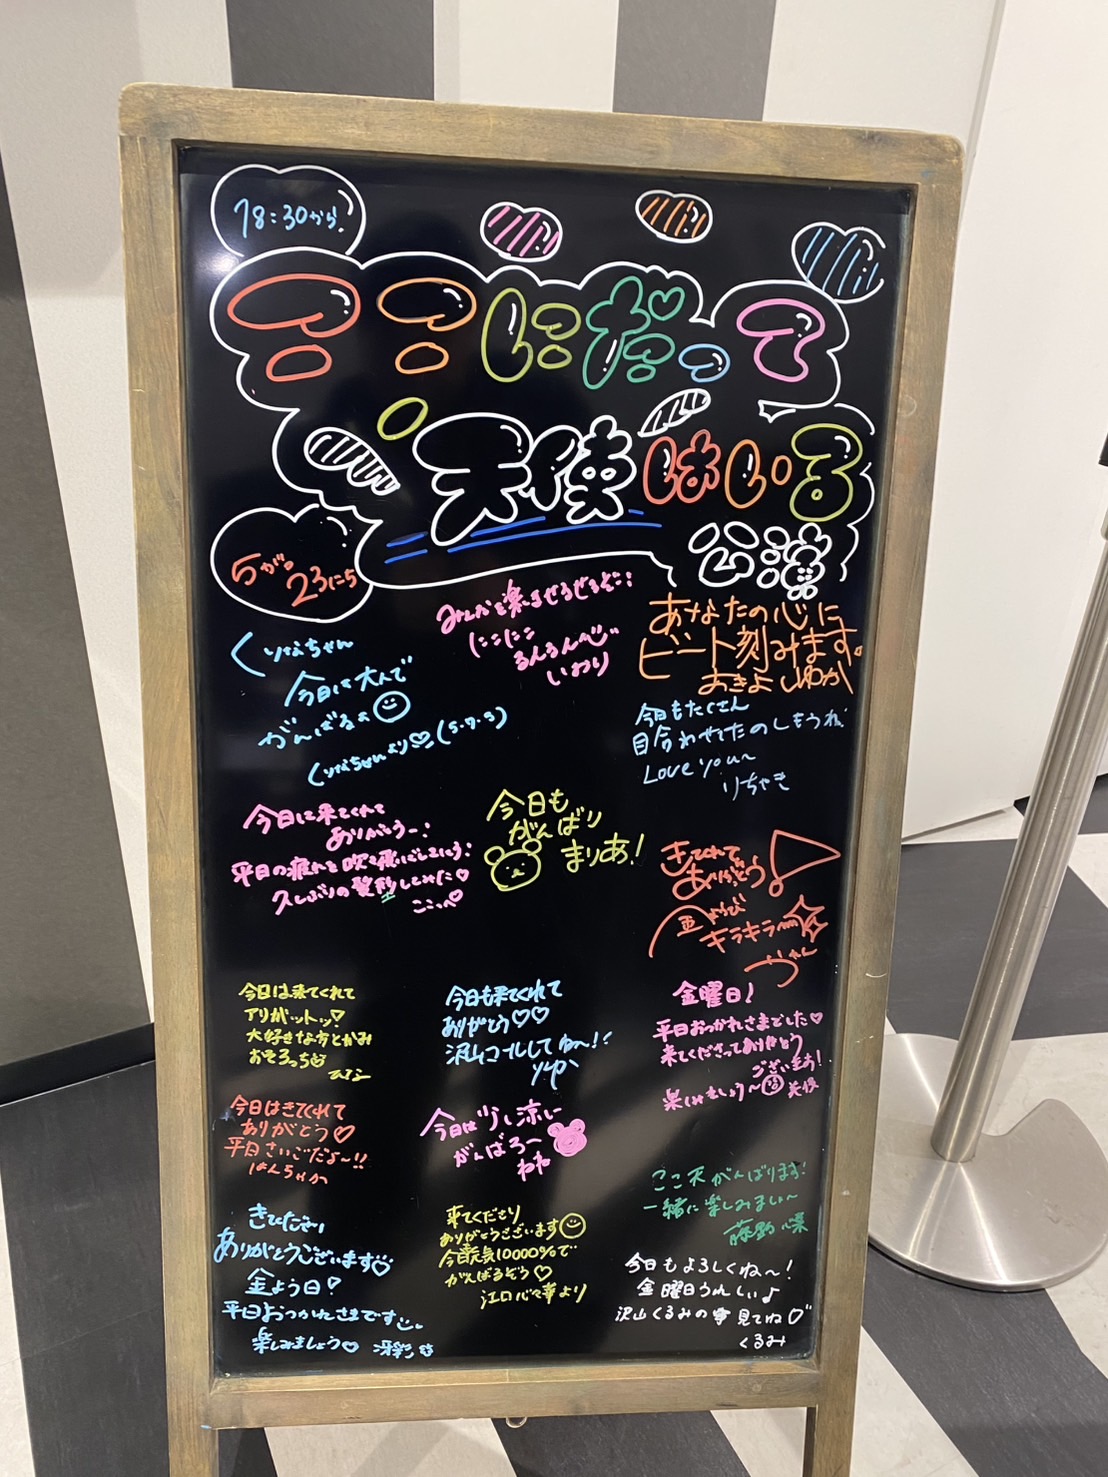 18:30から!
ここにだって
天使はいる
公演
5がつ
23にち
みんなを楽しませるぜるぞ!
にこにこ
るんるん
いおり
あなたの心に
ビート刻みます。
おきよしゆか
くりなちゃん
今日は
がんばるぉ
くりなちゃんより♡(5.7.9)
今日もたくさん
目合わせてたのしもうね!
Love you〜
りちゃき
今日は来てくれて
ありがとうー!
平日の疲れを吹き飛ばしましょう!
久しぶりの髪型してみた♡
ここっぺ
今日も
がんばり
まりあ!
きてくれて
ありがとう!
金ようび
キラキラ
今日は来てくれて
アリガットゥ!
大好きな方とかみ
おそろっち
今日も来てくれて
ありがとう♡♡
沢山コールしてね〜!!
金曜日!
平日おつかれさまでした♡
来てくださってありがとう
ございます!
楽しみましょう〜
今日はきてくれて
ありがとう♡
平日さいごだよ〜!!
はんちゃか
今日は少し涼しい
がんばろー
ねね
ここ天がんばります!
一緒に楽しみましょ〜
きてくださり
ありがとうございます♡
金よう日!
平日おつかれさまです
楽しみましょう♡ 冴彩
来てくださり
ありがとうございます
今日元気10000%で
がんばるぞう♡
江口心々華より
今日もよろしくね〜!
金曜日うれしい♪
沢山くるみの事見てね♡
くるみ